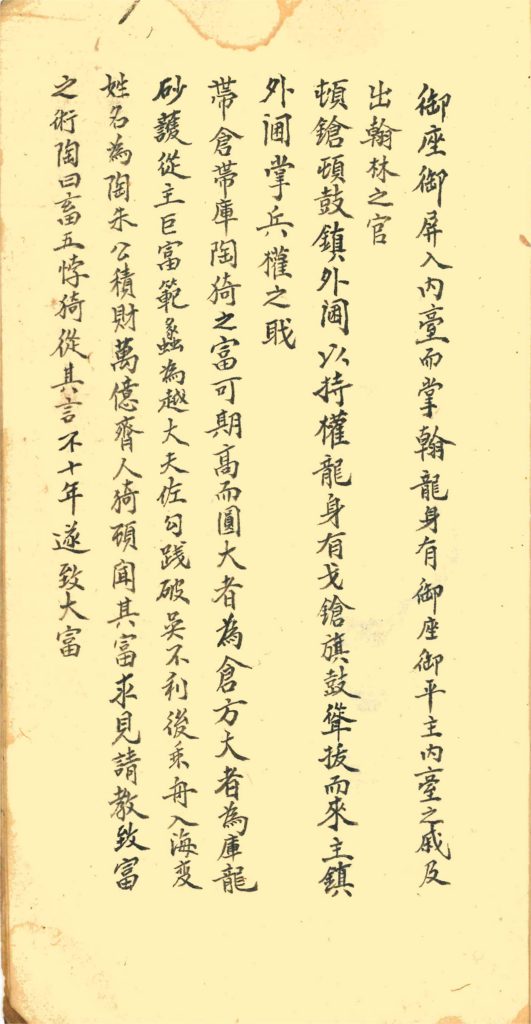 御座御屏入內臺而掌翰龍身有御座御平主內臺之戚及
出翰林之官
頓鎗頓鼓鎮外閫以持權龍身有戈鎗旗鼓聳拔而來主鎮
外閫掌兵權之職
帶倉帶庫陶猗之富可期高而圓大者為倉方大者為庫龍
砂護從主巨富範蠡為越大夫佐勾踐破吳不利後乘舟入海變
姓名為陶朱公積財萬億齊人猗頓聞其富求見請教致富
之術陶曰畜五悖猗從其言不十年遂致大富